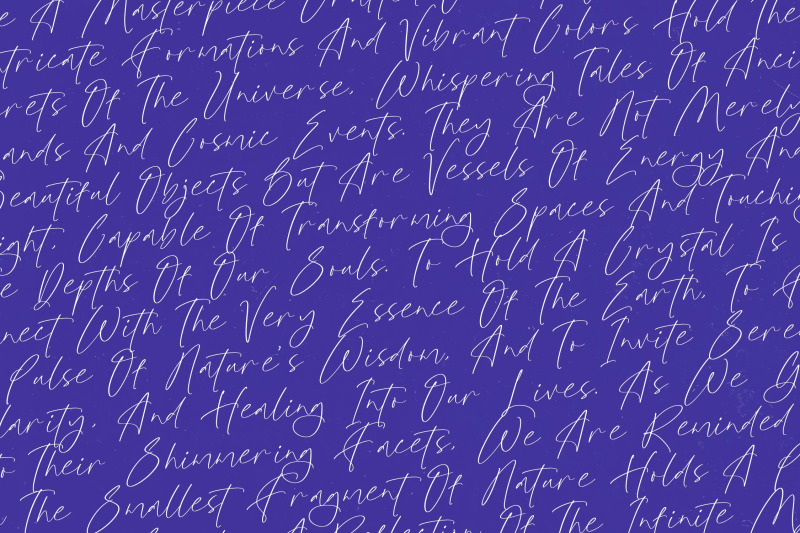 A Masterpiece
tricate Formations And Vibrant Colors Hold The
rets Of The Universe, Whispering Tales Of Anci
ands And Cosmic Events. They Are Not Merely
Beautiful Objects But Are Vessels Of Energy And
ight, Capable Of Transforming Spaces And Touching
e Depths Of Our Souls. To Hold A Crystal Is
nect With The Very Essence Of The Earth, To
Pulse Of Nature's Wisdom, And To Invite Seren
larity, And Healing Into Our Lives. As We G
to Their Shimmering Facets, We Are Reminded
The Smallest Fragment Of Nature Holds A
A Reflection Of The Infinite M